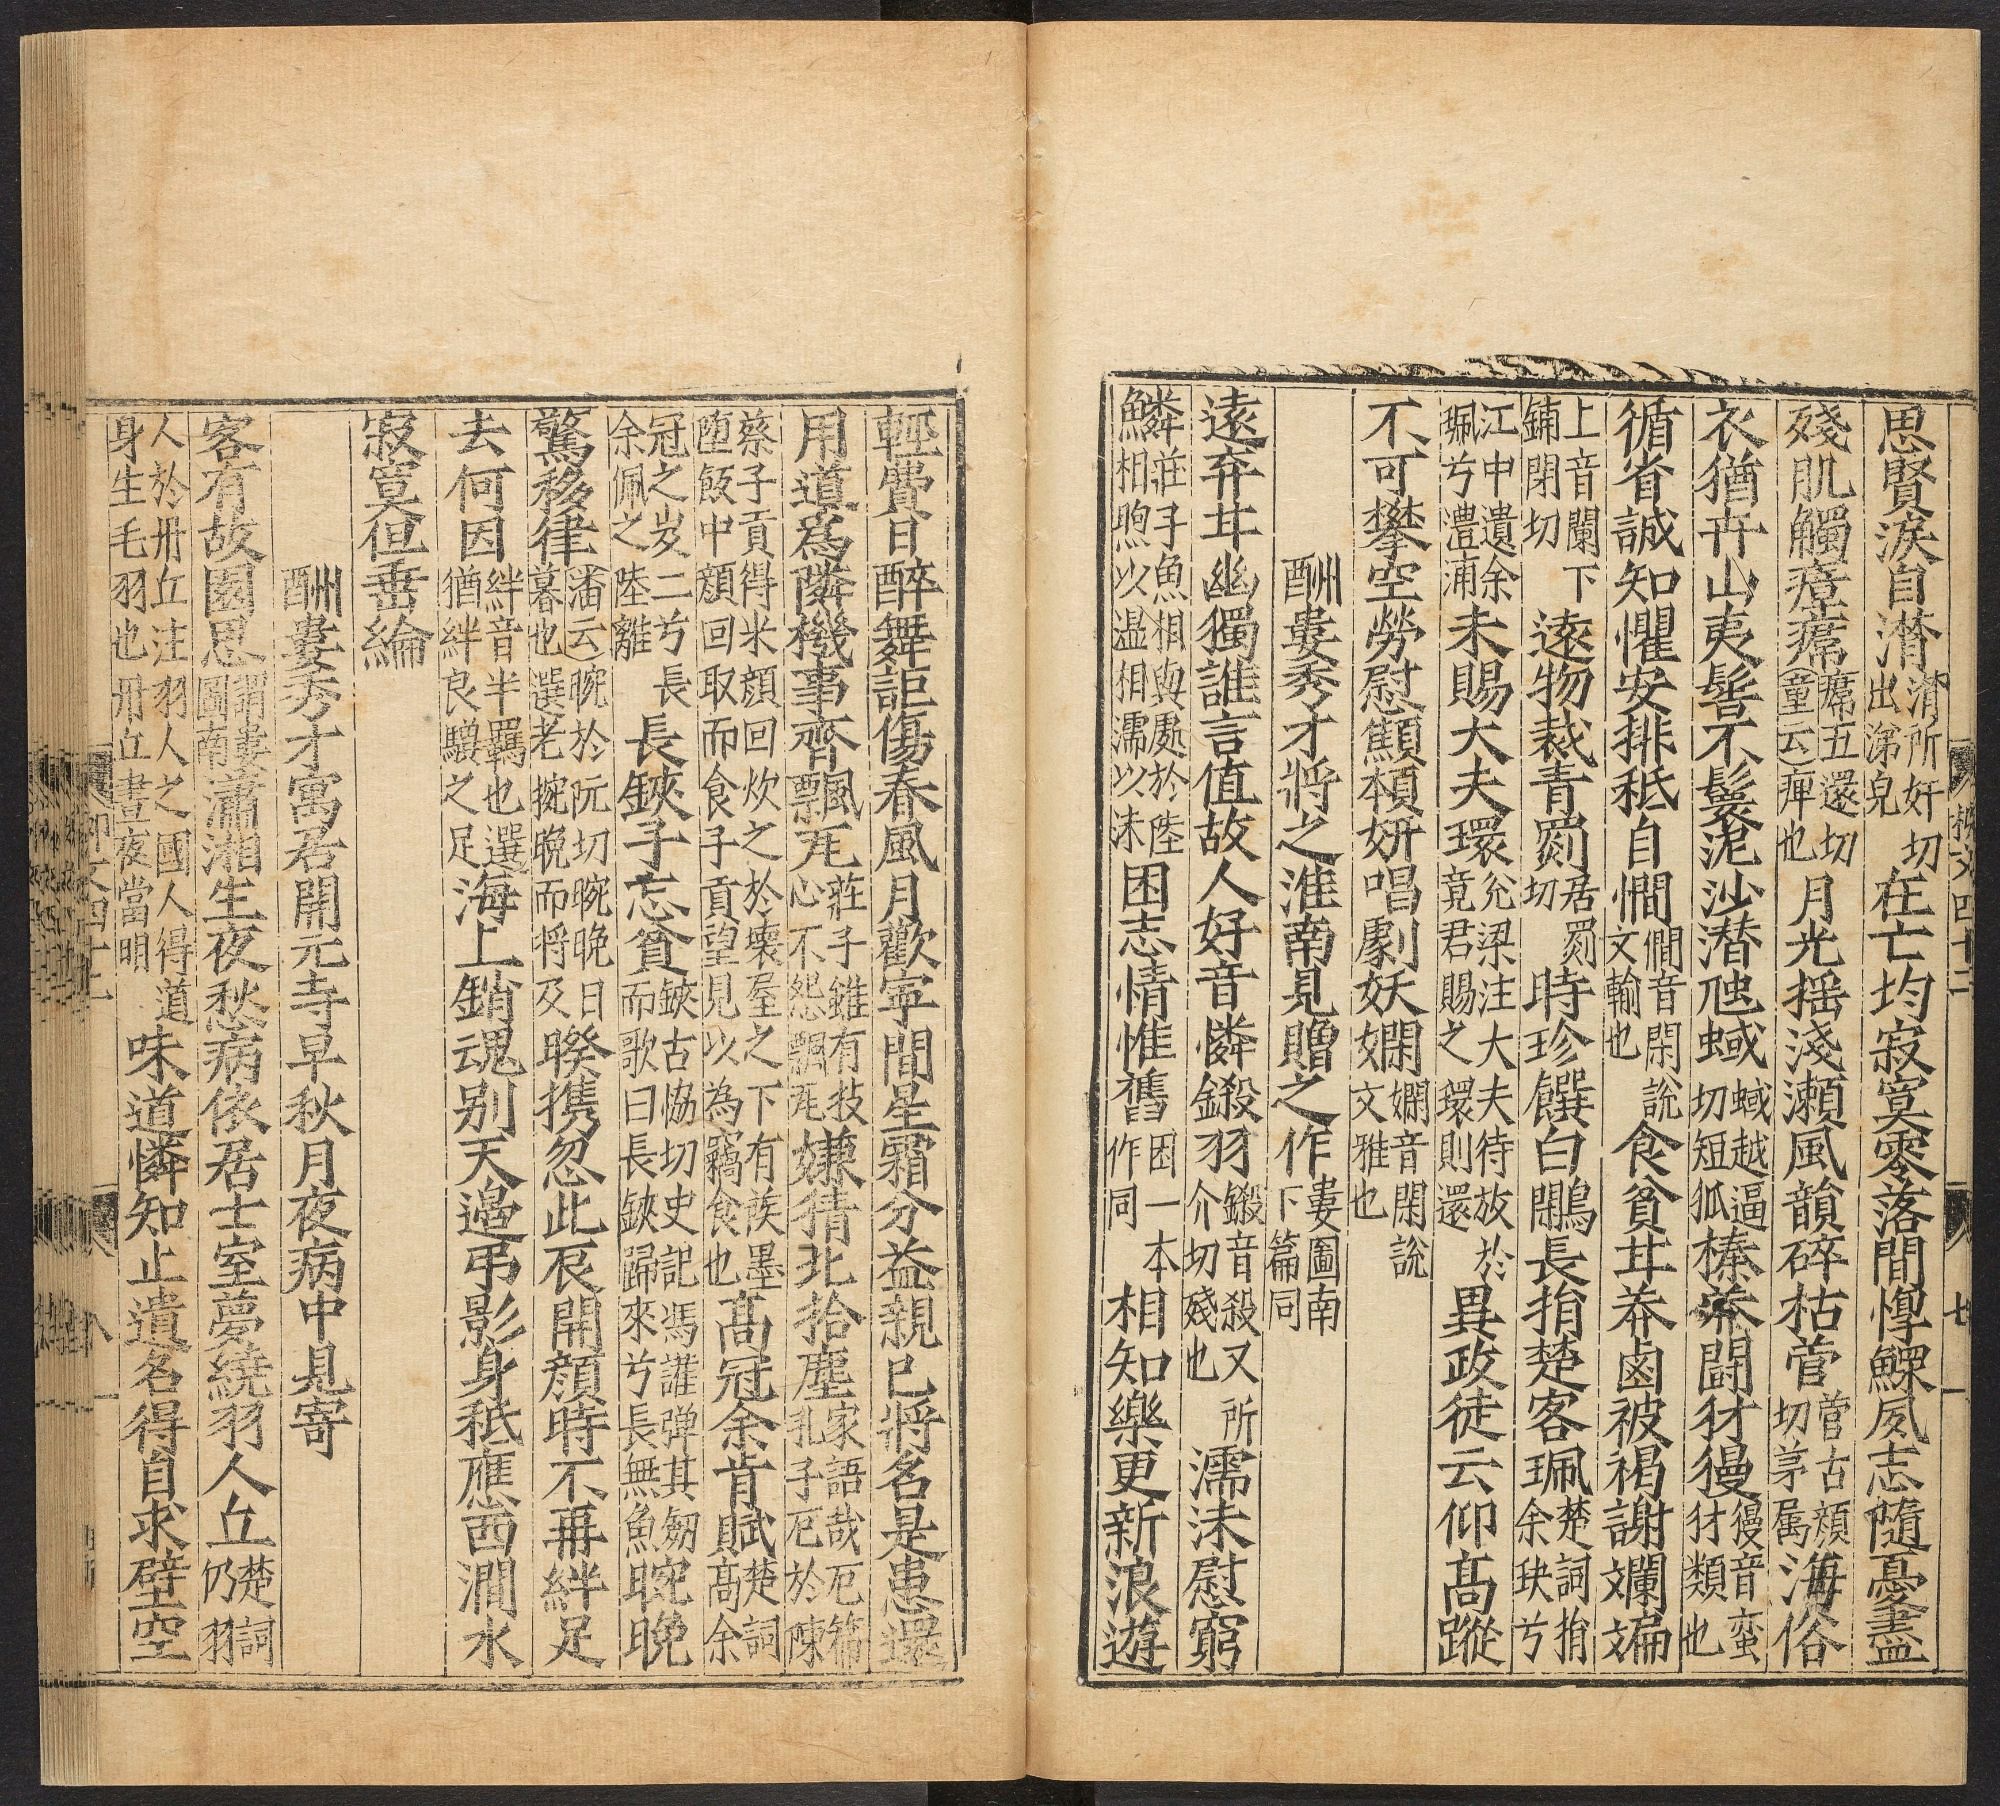 思賢淚自潸潸所奸切出涕皃在亡均寂寞零落間惸鰥夙志隨憂盡
殘肌觸瘴𤸷𤸷五還切童云痺也月光揺淺瀬風韻碎枯菅菅古顔切茅属海俗
衣猶卉山夷髻不鬟泥沙潜虺蜮蜮越逼切短狐榛莽鬪犲獌獌音蛮犲類也
循省誠知懼安排秪自憪憪音閑說文輸也食貧甘莽鹵被褐謝斕斒
上音闌下鋪閉切遠物裁青罽居罽切時珍饌白鷴長捐楚客珮楚詞捐余玦兮
江中遺余珮兮澧浦未賜大夫環兊梁注大夫待放於竟君賜之環則還異政徒云仰髙蹤
不可攀空勞慰顦顇妍唱劇妖嫻嫻音閑說文雅也
酬婁秀才將之淮南見贈之作婁圖南下篇同
遠弃甘幽獨誰言值故人好音憐鎩羽鎩音殺又所介切殘也濡沬慰窮
鱗莊子魚相與處於陸相煦以温相濡以沬困志情惟舊困一本作同相知樂更新浪遊
輕費日醉舞詎傷春風月歡寜間星霜分益親已將名是患還
用道爲隣機事齊飄瓦莊子雖有技心不怨飄瓦嫌猜北拾塵家語哉厄篇孔子厄於陳
蔡子貢得米顔回炊之於壊屋之下有族墨堕飯中顔回取而食子貢望見以為竊食也髙冠余肯賦楚詞髙余
冠之岌二兮長余佩之陸離長鋏子忘貧鋏古協切史記馮諼弹其劔而歌曰長鋏歸來兮長無魚晼晚
驚移律潘云晼於阮切晼晚日暮也選老捥晩而将及暌携忽此辰開顔時不再絆足
去何因絆音半羈也選猶絆良驥之足海上銷魂别天邉弔影身秪應西澗水
寂寞但垂綸
酬婁秀才寓居開元寺早秋月夜病中見寄
客有故園思謂婁圖南瀟湘生夜愁病依居士室夢繞羽人丘楚詞仍羽
人於丹丘注羽人之國人得道身生毛羽也丹丘晝夜當明味道憐知止遺名得自求壁空